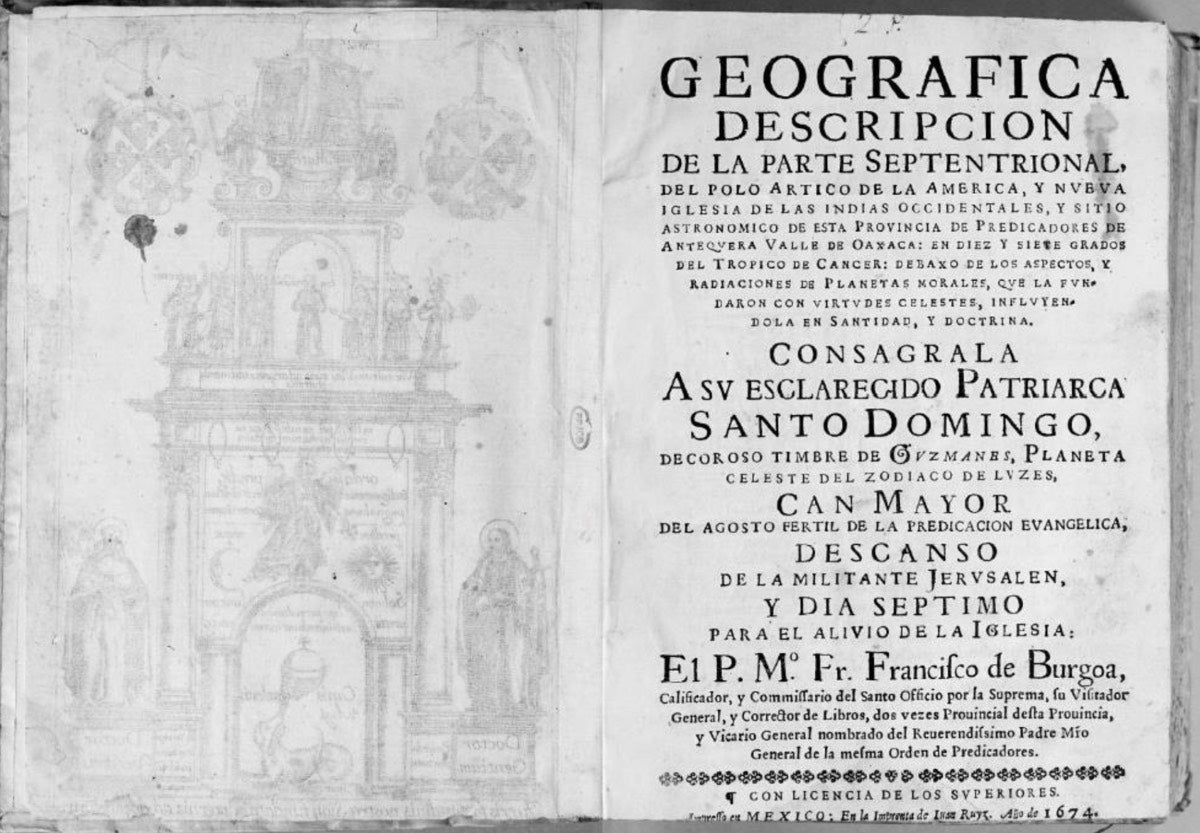 GEOGRAFICA
DESCRIPCION
DE LA PARTE SEPTENTRIONAL,
DEL POLO ARTICO DE LA AMERICA, Y NVEVA
IGLESIA DE LAS INDIAS OCCIDENTALES, Y SITIO
ASTRONOMICO DE ESTA PROVINCIA DE PREDICADORES DE
ANTEQVERA VALLE DE OAXACA: EN DIEZ Y SIETE GRADOS
DEL TROPICO DE CANCER: DEBAXO DE LOS ASPECTOS, Y
RADIACIONES DE PLANETAS MORALES, QVE LA FVN-
DARON CON VIRTVDES CELESTES, INFLVYEN-
DOLA EN SANTIDAD, Y DOCTRINA.
CONSAGRALA
A SV ESCLARECIDO PATRIARCA
SANTO DOMINGO,
DECOROSO TIMBRE DE GVZMANES, PLANETA
CELESTE DEL ZODIACO DE LVZES,
CAN MAYOR
DEL AGOSTO FERTIL DE LA PREDICACION EVANGELICA,
DESCANSO
DE LA MILITANTE JERVSALEN,
Y DIA SEPTIMO
PARA EL ALIVIO DE LA IGLESIA:
El P. Mº. Fr. Franciſco de Burgoa,
Calificador, y Commiſſario del Santo Officio por la Suprema, ſu Viſitador
General, y Corrector de Libros, dos vezes Prouincial deſta Prouincia,
y Vicario General nombrado del Reuerendiſsimo Padre Mro
General de la meſma Orden de Predicadores.
¶ CON LICENCIA DE LOS SVPERIORES.
en MEXICO: En la Imprenta de Iuan Ruyz. Año de 1674.
Doctor
Gentium